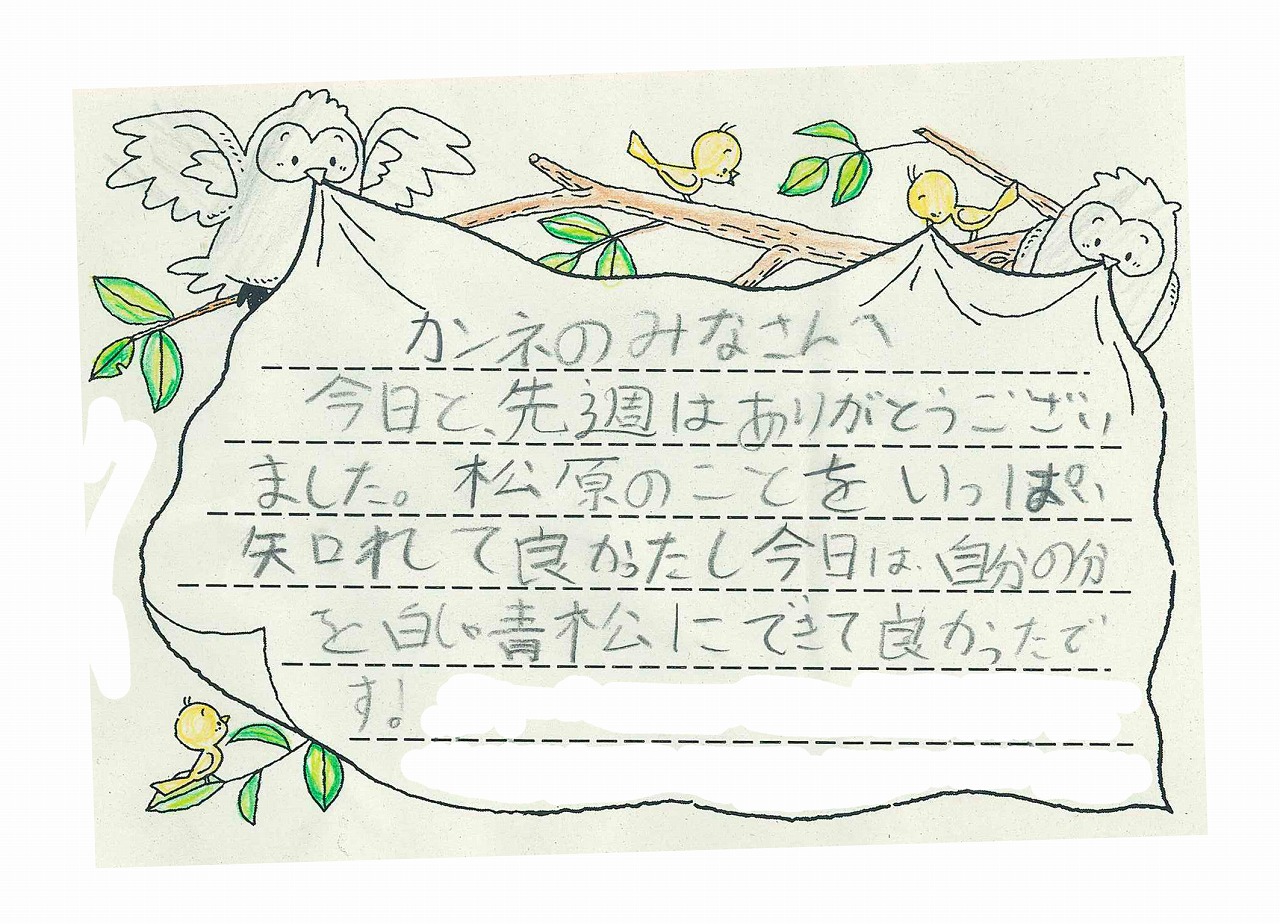 カンネのみなさんへ
今日と、先週はありがとうござい
ました。松原のことをいっぱい
知れて良かったし今日は、自分の分
を白しゃ青松にできて良かったで
す!